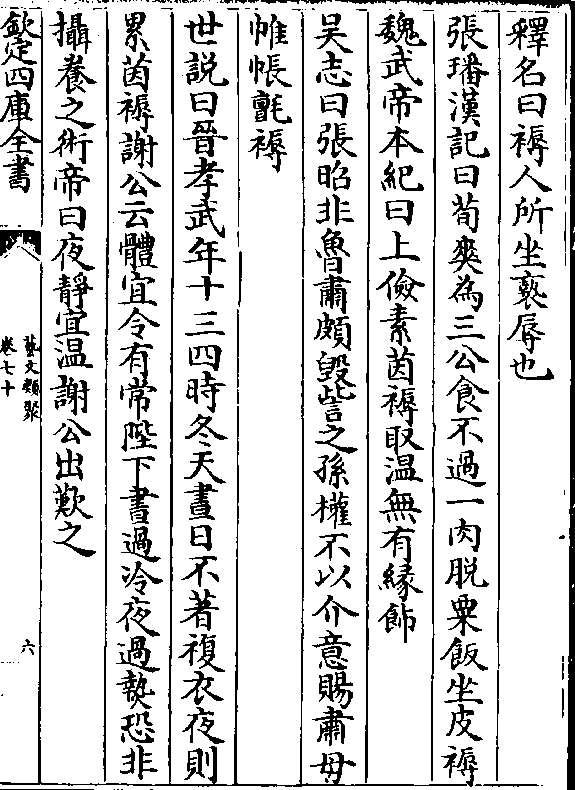 釋名曰褥人所坐䙝辱也
張璠漢記曰荀爽為三公食不過一肉脫粟飯坐皮褥
魏武帝本紀曰上儉素茵褥取温無有緣飾
吳志曰張昭非魯肅頗毀訾之孫權不以介意賜肅母
帷帳氈褥
世説曰晉孝武年十三四時冬天晝日不著複衣夜則
累茵褥謝公云體宜令有常陛下晝過冷夜過熱恐非
攝養之術帝曰夜靜宜温謝公出歎之
欽定四庫全書
藝文類聚
卷七十
六